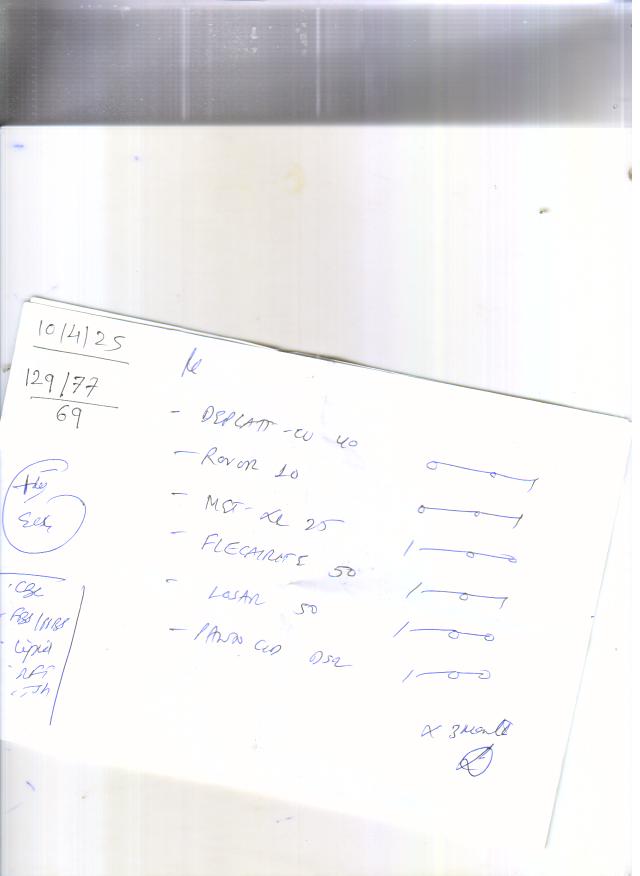 10/4/25
129/77
69
- DEPLATT-CV 40 0—0—1
- ROVOR 10 0—0—1
- MET-XL 25 1—0—0
- 50 1—0—1
- LOSAR 50 1—0—0
- DSR 1—0—0
CBC
FBS/
Lipid
RFT
TSH
x 3 month